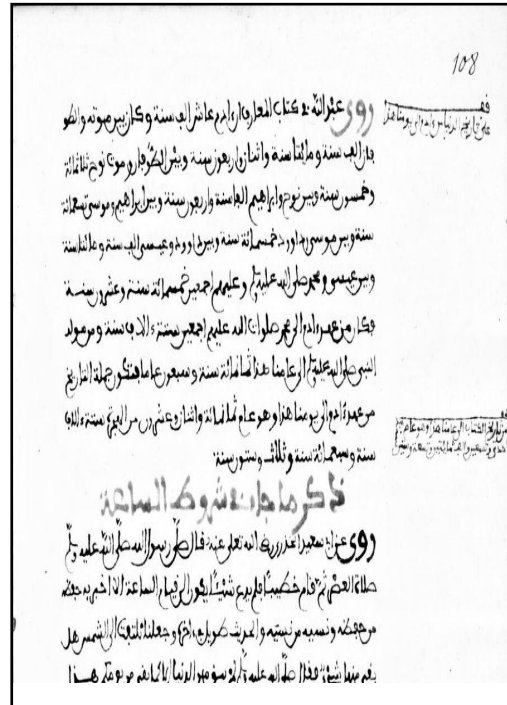 108
روى عبد الله في كتاب المعارف ان ادم عاش الف سنة وكان بين موته والطو
فان الف سنة ومائتا سنة واثنان واربعون سنة وبين الطوفان وموت نوح ثلاثمائة
وخمسون سنة وبين نوح وابراهيم الفا سنة واربعون سنة وبين ابراهيم وموسى تسعمائة
سنة وبين موسى وداوود خمسمائة سنة وبين داوود وعيسى الف سنة ومائتا سنة
وبين عيسى ومحمد صلى الله عليه وسلم وعليهم اجمعين خمسمائة سنة وعشرون سنة
فكان من عهد ادم الى محمد صلوات الله عليهم اجمعين ستة ءالاف سنة ومن مولد
النبي صلى الله عليه وسلم الى عامنا هذا ثمانمائة سنة وسبعون عاما فتكون جملة التاريخ
من عهد ءادم الى يومنا هذا وهو عام ثمانمائة واثنان وعشرون من الهجرة ستة ءالاف
سنة وسبعمائة سنة وثلاث وستون سنة
ذكر ما جاء في شروط الساعة
روى عن ابي سعيد الخدري رضي الله تعلى عنه قال صلى رسول الله صلى الله عليه وسلم
صلاة العصر ثم قام خطيبا فلم يدع شيئا يكون الى قيام الساعة الا اخبر به حفظه
من حفظه ونسيه من نسيه والحديث طويل وجعلنا نلتفت الى الشمس هل
بقي منها شيء فقال صلى الله عليه وسلم لم يبق من الدنيا الا كما بقي من يومكم هذا
قف
على تاريخ الدنيا من ءادم الى يومنا هذا
قف
من تاريخ الكتاب الى عامنا هذا وهو عام